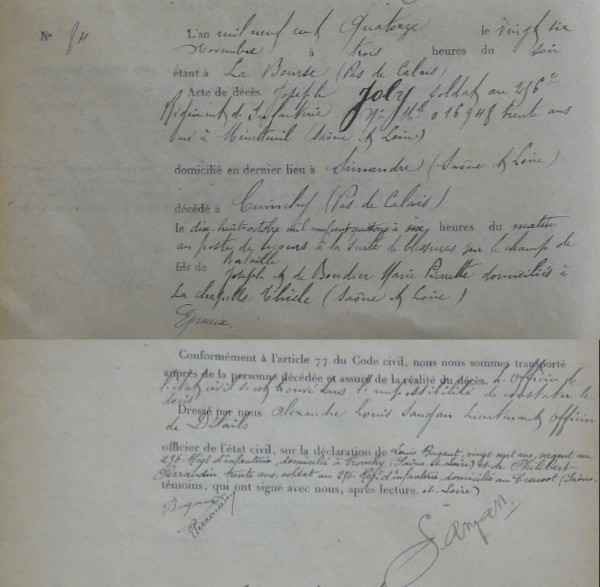 N° 84
L'an mil neuf cent Quatorze le vingt six
Novembre à trois heures du soir
étant à La Bourse (Pas de Calais)
Acte de décès Joseph Joly soldat au 256e
Régiment d'Infanterie Mle 016948 trente ans
né à (Saône & Loire)
domicilié en dernier lieu à Simandre (Saône & Loire)
décédé à Cuinchy (Pas de Calais)
le dix huit octobre mil neuf cent quatorze à six heures du matin
au poste de secours à la suite de blessures sur le champ de
Bataille
fils de Joseph & de Boudier Marie Pierrette domiciliés à
La chapelle Thècle (Saône & Loire)
Epoux
Conformément à l'article 77 du Code civil, nous nous sommes transporté
auprès de la personne décédée et assuré de la réalité du décès. L'officier de
l'état civil s'est trouvé dans l'impossibilité de constater le
décès
Dressé par nous Alexandre Louis Sanjan Lieutenant officier
de Détails
officier de l'état civil, sur la déclaration de Louis vingt sept ans, sergent au
256 Régt d'infanterie, domicilié à (Saône & Loire) et de Philibert
Perraudin trente ans, soldat au 256 Régt d'infanterie, domicilié au Creusot (Saône
témoins, qui ont signé avec nous, après lecture. et Loire)
Perraudin
Sanjan